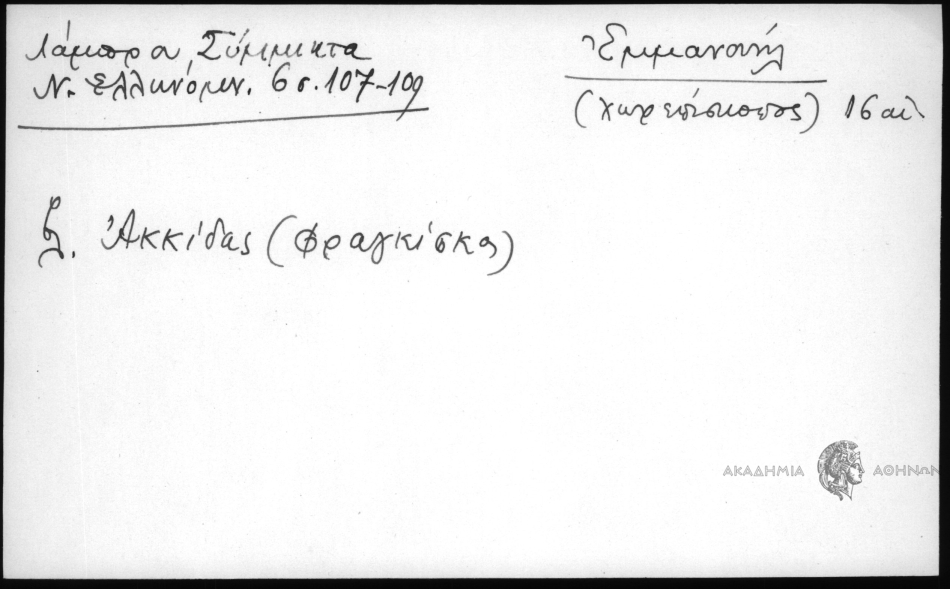 Λάμπρα, Σύμμικτα
Ν. Ἑλληνόμν. 6 σ. 107-109
Ἐμμανουήλ
(χωρεπίσκοπος) 16 αἰ.
βλ. Ἀκκίδας (Φραγκίσκος)
ΑΚΑΔΗΜΙΑ ΑΘΗΝΩΝ